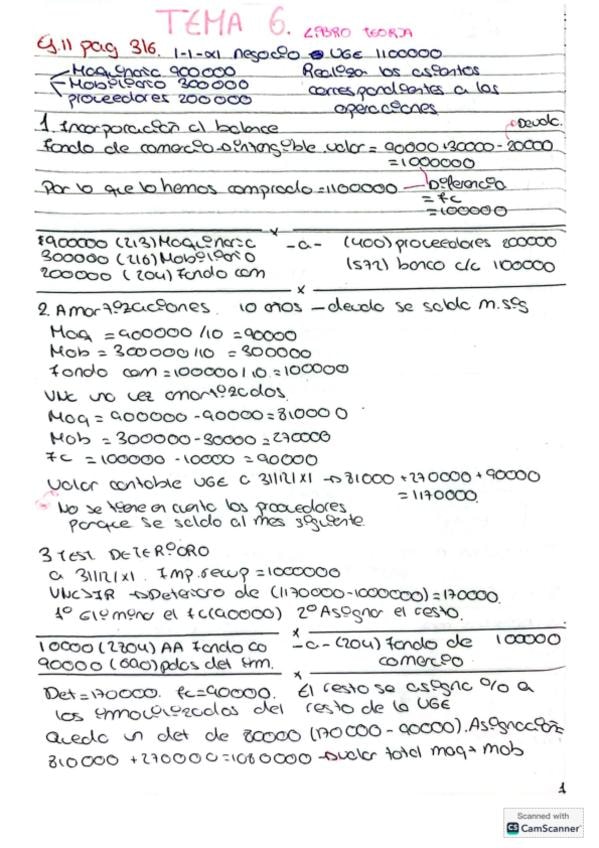 TEMA 6. LIBRO TEORIA
Ej.11 pag 316. 1-1-X1 negocio UGE 1100000
Maquinaria 900000 Realizar los asientos
Mobiliario 300000 correspondientes a las
proveedores 200000 operaciones
1. Incorporación al balance
Devolc.
Fondo de comercio intangible. valor = 90000+30000-20000
=1000000
Por lo que lo hemos comprado=1100000 Diferencia
= fc
=100000
x
900000 (213) Maquinaria -a- (400) proveedores 200000
300000 (216) Mobiliario (572) banco c/c 1100000
200000 (204) Fondo com
x
2. Amortizaciones. 10 años - deuda se salda m.sig
Maq = 900000 /10 = 90000
Mob = 300000/10 = 300000
Fondo com = 100000/10 = 100000
VNC una vez amortizados.
Maq = 900000 - 90000 = 810000
Mob = 300000 - 30000 = 270000
fc = 100000 - 10000 = 90000
Valor contable UGE a 31/12/X1 → 81000 + 270000 + 90000
= 1170000
No se tiene en cuenta los proveedores
porque se salda al mes siguiente
3 TEST DETERIORO
a 31/12/X1. Imp. recup = 1000000
VNC>IR → Deterioro de (1170000-1000000) = 170000.
1º Eliminar el fc (90000) 2º Asignar el resto.
x
10000 (2804) AA Fondo co -a- (204) Fondo de 100000
90000 (690) pdas det inm. comercio
x
Det = 170000. fc = 90000. El resto se asigna % a
los inmovilizados del resto de la UGE
Queda un det de 80000 (170000 - 90000). Asignación
810000 + 270000 = 1080000 → valor total maq + mob
1
Scanned with
CS CamScanner